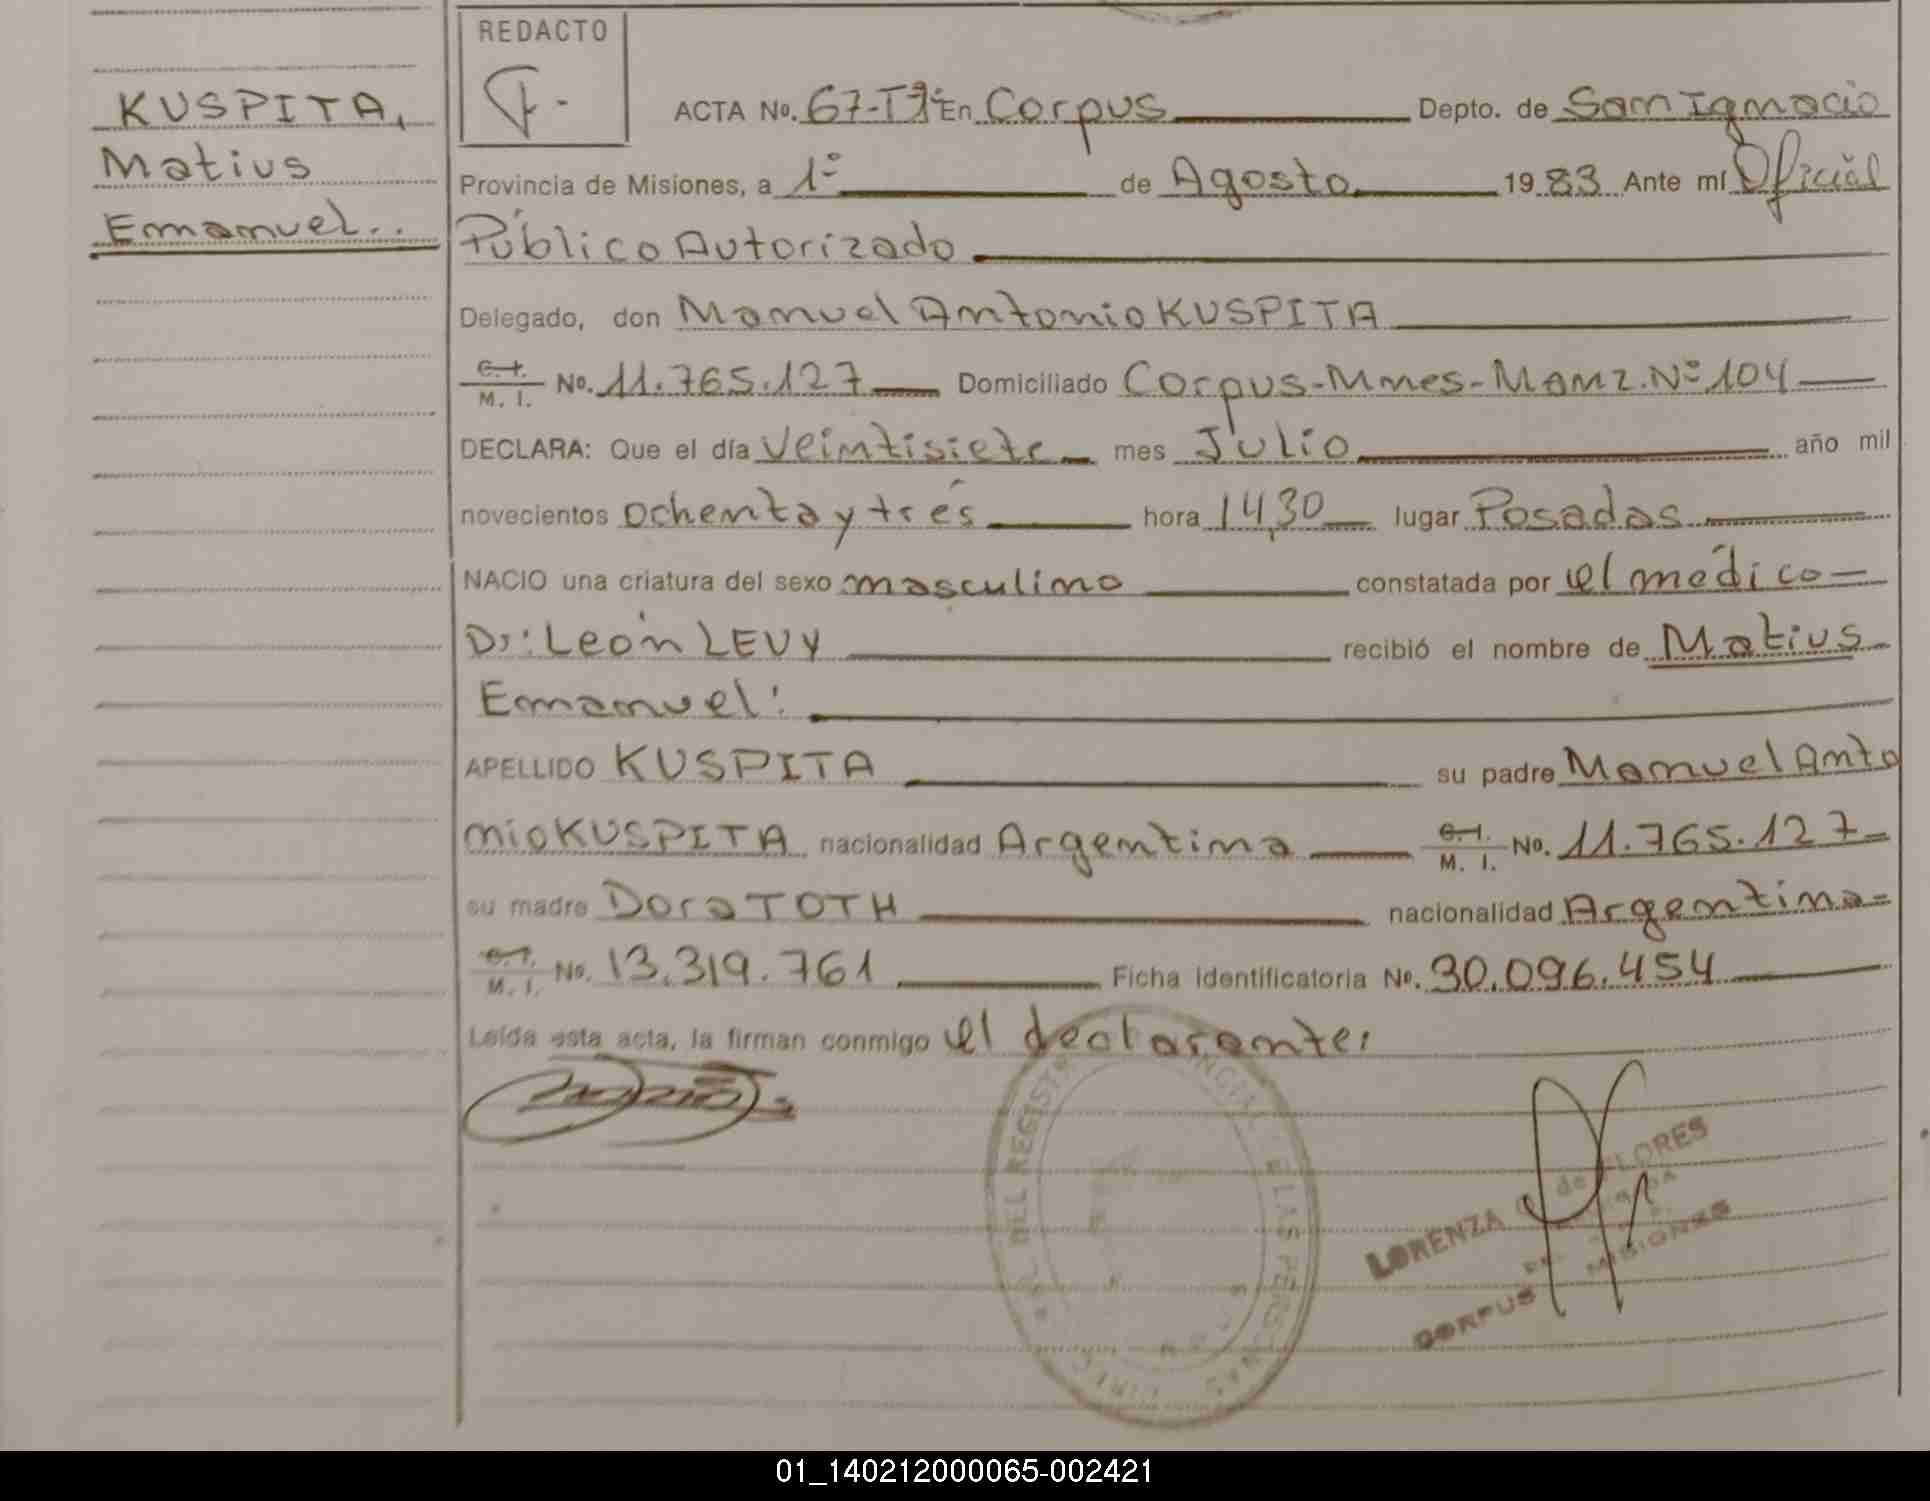 REDACTO
KUSPITA,
Matius
Emanuel..
ACTA No. 67-Tº1º En Corpus Depto. de San Ignacio
Provincia de Misiones, a 1º de Agosto 1983 Ante mí Oficial
Público Autorizado
Delegado, don Manuel Antonio KUSPITA
C. I. M. I. No. 11.765.127 Domiciliado Corpus-Mnes-Manz.Nº 104
DECLARA: Que el día veintisiete mes Julio año mil
novecientos ochenta y trés hora 14,30 lugar Posadas
NACIO una criatura del sexo masculino constatada por el médico
Dr: León LEVY recibió el nombre de Matius
Emanuel:
APELLIDO KUSPITA su padre Manuel Anto
nio KUSPITA nacionalidad Argentina C. I. M. I. No. 11.765.127
su madre Dora TOTH nacionalidad Argentina=
C. I. M. I. No. 13.319.761 Ficha identificatoria No. 30.096.454
Leída esta acta, la firman conmigo el declarante:
DEL REGISTRO
LAS PERSONAS
LORENZA de FLORES
CORPUS MISIONES
01_140212000065-002421